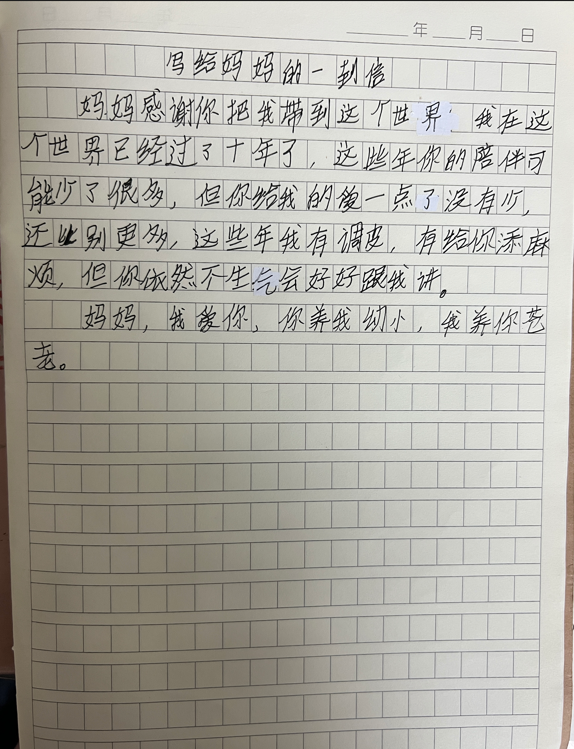 年 月 日
写给妈妈的一封信
妈妈感谢你把我带到这个世界，我在这
个世界已经过了十年了，这些年你的陪伴可
能少了很多，但你给我的爱一点了没有少，
还比别更多，这些年我有调皮，有给你添麻
烦，但你依然不生气会好好跟我讲。
妈妈，我爱你，你养我幼小，我养你艺
老。